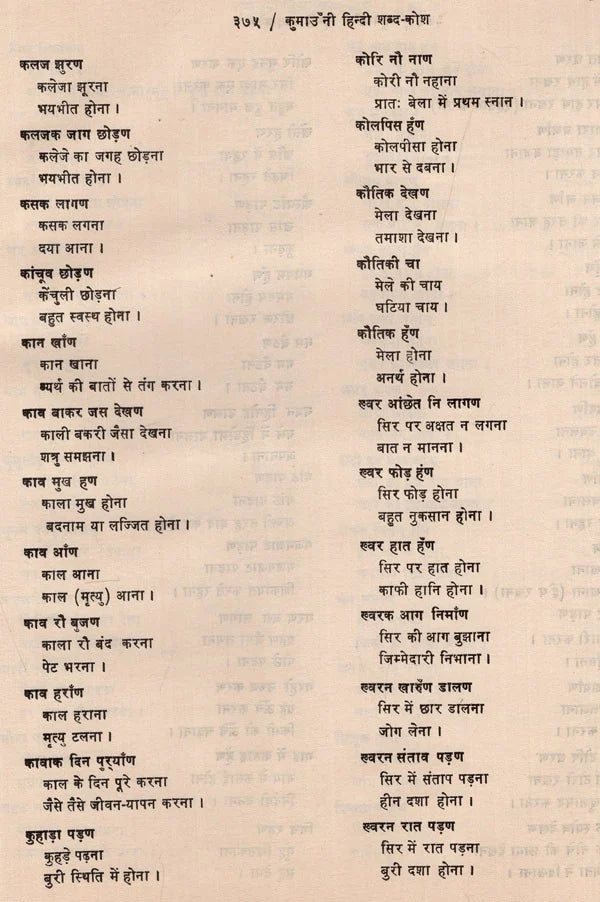 ३७५ / कुमाउँनी हिन्दी शब्द-कोश
कलज झुरण
कलेजा झूरना
भयभीत होना ।
कलजक जाग छोड़ण
कलेजे का जगह छोड़ना
भयभीत होना ।
कसक लागण
कसक लगना
दया आना ।
कांचूव छोड़ण
केंचुली छोड़ना
बहुत स्वस्थ होना ।
कान खाँण
कान खाना
व्यर्थ की बातों से तंग करना ।
काव बाकर जस देखण
काली बकरी जैसा देखना
शत्रु समझना ।
काव मुख हण
काला मुख होना
बदनाम या लज्जित होना ।
काव आँण
काल आना
काल (मृत्यु) आना ।
काव रौ बुजण
काला रौ बंद करना
पेट भरना ।
काव हराँण
काल हराना
मृत्यु टलना ।
कावाक दिन पुर्‌याँण
काल के दिन पूरे करना
जैसे तैसे जीवन-यापन करना ।
कुहाड़ा पड़ण
कुहड़े पढ़ना
बुरी स्थिति में होना ।
कोरि नौ नाण
कोरी नौ नहाना
प्रातः बेला में प्रथम स्नान ।
कोलपिस हँण
कोलपीसा होना
भार से दबना ।
कौतिक देखण
मेला देखना
तमाशा देखना ।
कौतिकी चा
मेले की चाय
घटिया चाय ।
कौतिक हँण
मेला होना
अनर्थ होना ।
ख्वर आंछेत नि लागण
सिर पर अक्षत न लगना
बात न मानना ।
ख्वर फोड़ हँण
सिर फोड़ होना
बहुत नुकसान होना ।
ख्वर हात हँण
सिर पर हात होना
काफी हानि होना ।
ख्वरक आग निमाँण
सिर की आग बुझाना
जिम्मेदारी निभाना ।
ख्वरन खारुँण डालण
सिर में छार डालना
जोग लेना ।
ख्वरन संताव पड़ण
सिर में संताप पड़ना
हीन दशा होना ।
ख्वरन रात पड़ण
सिर में रात पड़ना
बुरी दशा होना ।